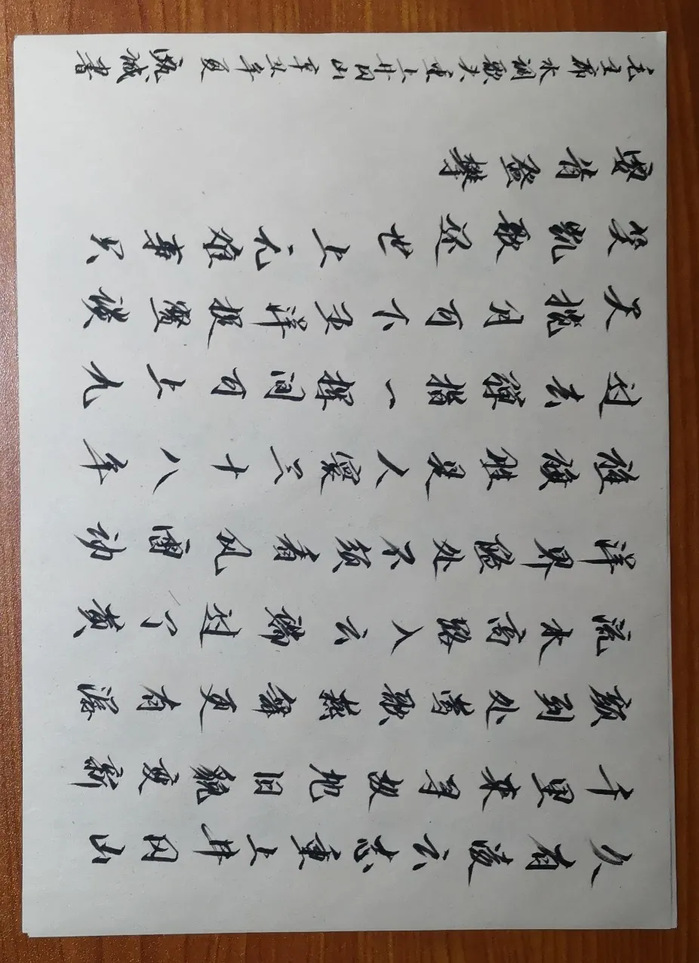 久有凌云志重上井冈山
千里来寻故地旧貌变新
颜到处莺歌燕舞更有潺
流水高路入云端过了黄
洋界险处不须看风雷动
旌旗是人寰三十八年
过去彈指一挥间可上九
天揽月可下五洋捉鳖谈
笑凯歌还世上无难事只
要肯登攀
毛主席水调歌头重上井冈山辛丑年夏甄诚書